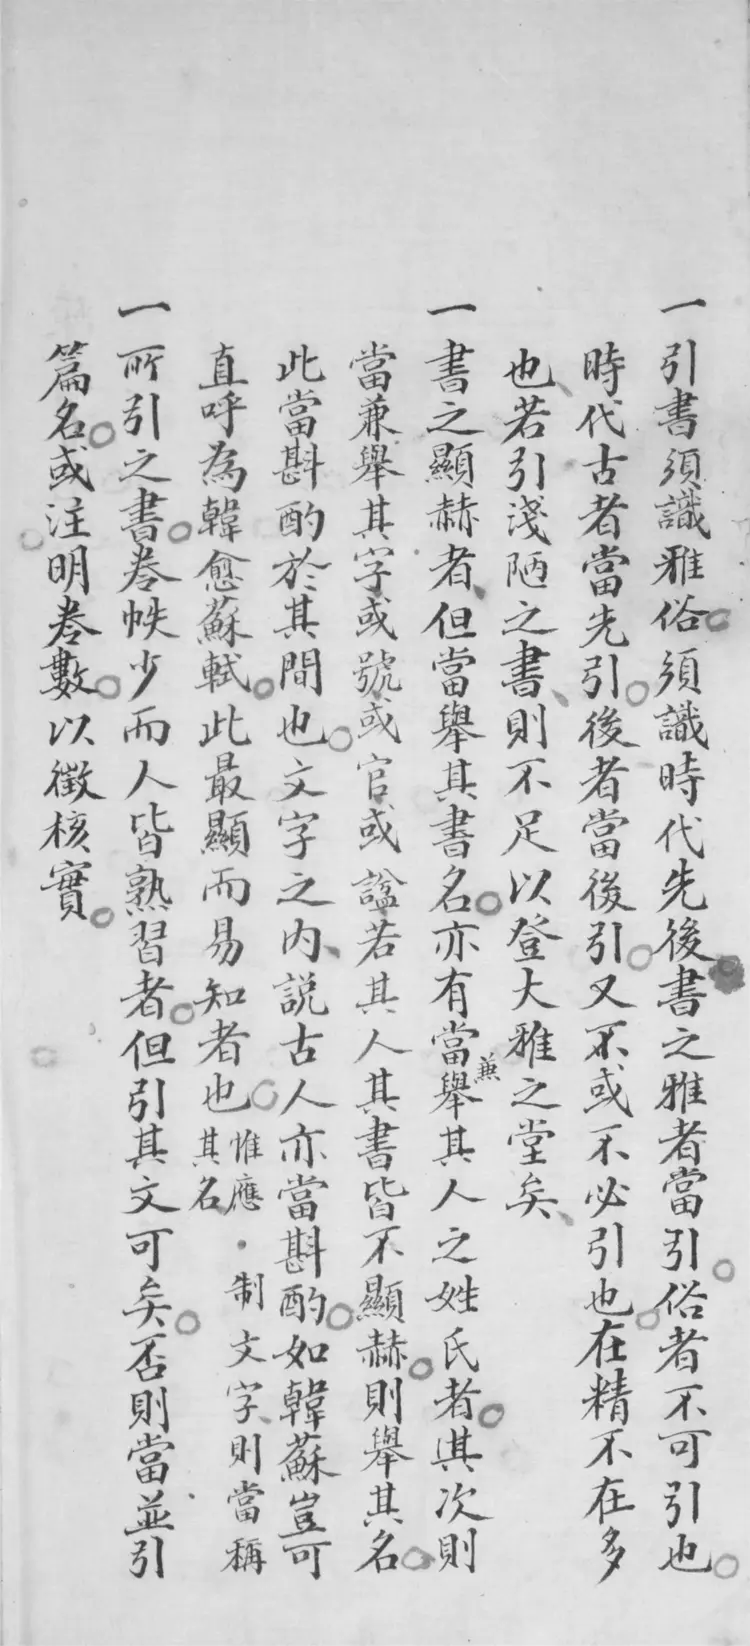 一引書須識雅俗須識時代先後書之雅者當引俗者不可引也
時代古者當先引後者當後引又不或不必引也在精不在多
也若引淺陋之書則不足以登大雅之堂矣
一書之顯赫者但當舉其書名亦有當兼舉其人之姓氏者其次則
當兼舉其字或號或官或諡若其人其書皆不顯赫則舉其名
此當斟酌於其間也文字之內說古人亦當斟酌如韓蘇豈可
直呼為韓愈蘇軾此最顯而易知者也惟應制文字則當稱
其名
一所引之書卷帙少而人皆熟習者但引其文可矣否則當並引
篇名或注明卷數以徵核實